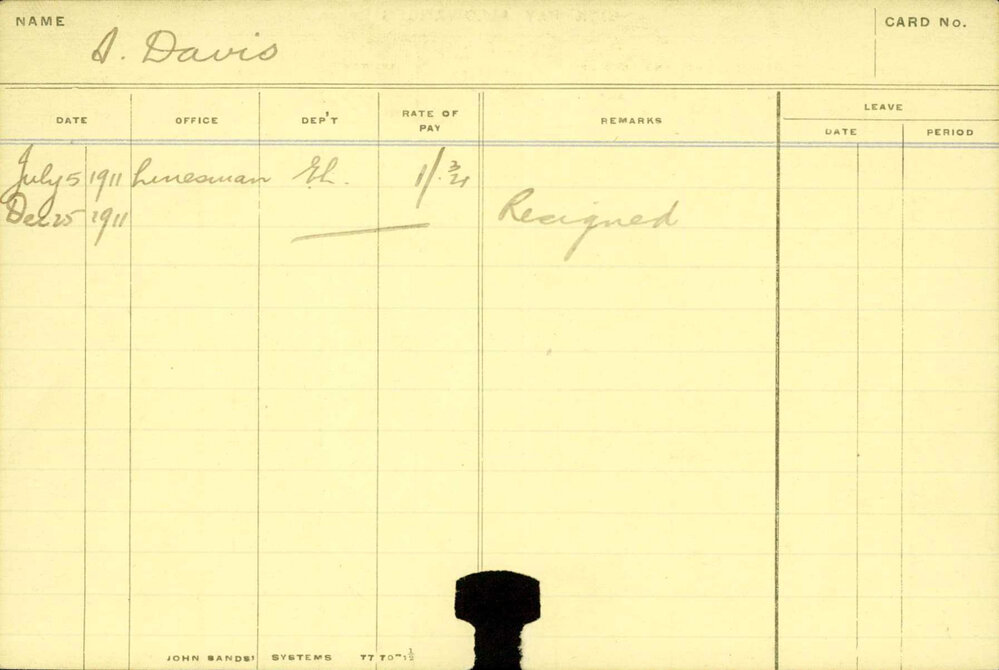 NAME
CARD No.
Davis
DATE OFFICE DEP'T RATE OF PAY REMARKS LEAVE
DATE PERIOD
July 5 1911 Linesman El. 1/.
Dec 25 1911 Resigned
JOHN SANDS' SYSTEMS 77